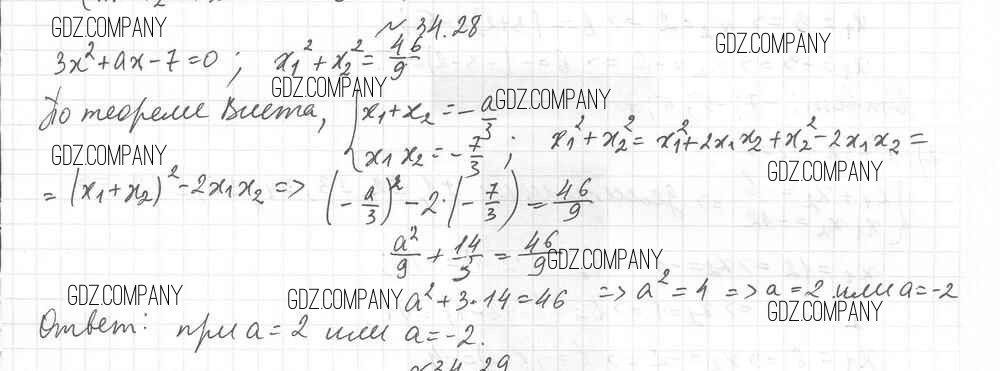 № 34.28
GDZ.COMPANY
GDZ.COMPANY
3x²+ax-7=0; x₁²+x₂²=46/9
GDZ.COMPANY
GDZ.COMPANY
По теореме Виета, { x₁+x₂=-a/3
x₁x₂=-7/3; x₁²+x₂²= x₁²+2x₁x₂+x₂²-2x₁x₂=
GDZ.COMPANY
GDZ.COMPANY
=(x₁+x₂)²-2x₁x₂ => (-a/3)²-2·(-7/3)=46/9
a²/9+14/3=46/9
GDZ.COMPANY
GDZ.COMPANY
GDZ.COMPANY
a²+3·14=46 => a²=4 => a=2 или a=-2
GDZ.COMPANY
Ответ: при a=2 или a=-2.
№34.29